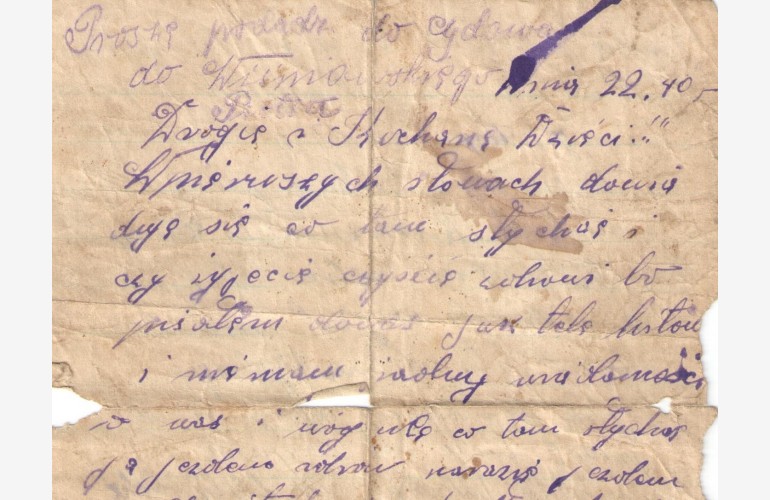 Proszę podadz do Cydowa
do Wisniowskiego
dnia 22.40-
Drogię i Kochanę Dzięci!!"
Wpięrwszych słowach dowia
duję się co tam słychać i
czy żyjęcię czyście zdrowi bo
pisałem dowas już telę listow
i niemam żadny wiadomości
o was i wogulę co tam słychać
ja jezdem zdrow narazię jezdem